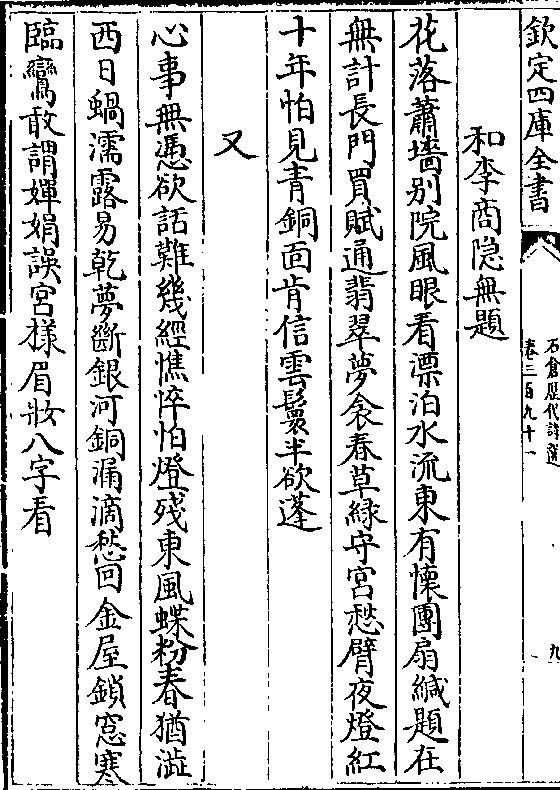 欽定四庫全書
石倉歷代詩選
卷三百九十一
九
和李商隐無題
花落蕭墻别院風眼看漂泊水流東有懐團扇緘題在
無計長門買賦通翡翠夢衾春草緑守宮愁臂夜燈紅
十年怕見青銅面肯信雲鬟半欲蓬
又
心事無憑欲話難幾經憔悴怕燈殘東風蝶粉春猶澁
西日蝸濡露易乾夢斷銀河銅漏滴愁回金屋鎖窓寒
臨鸞敢謂嬋娟誤宮樣眉妝八字看